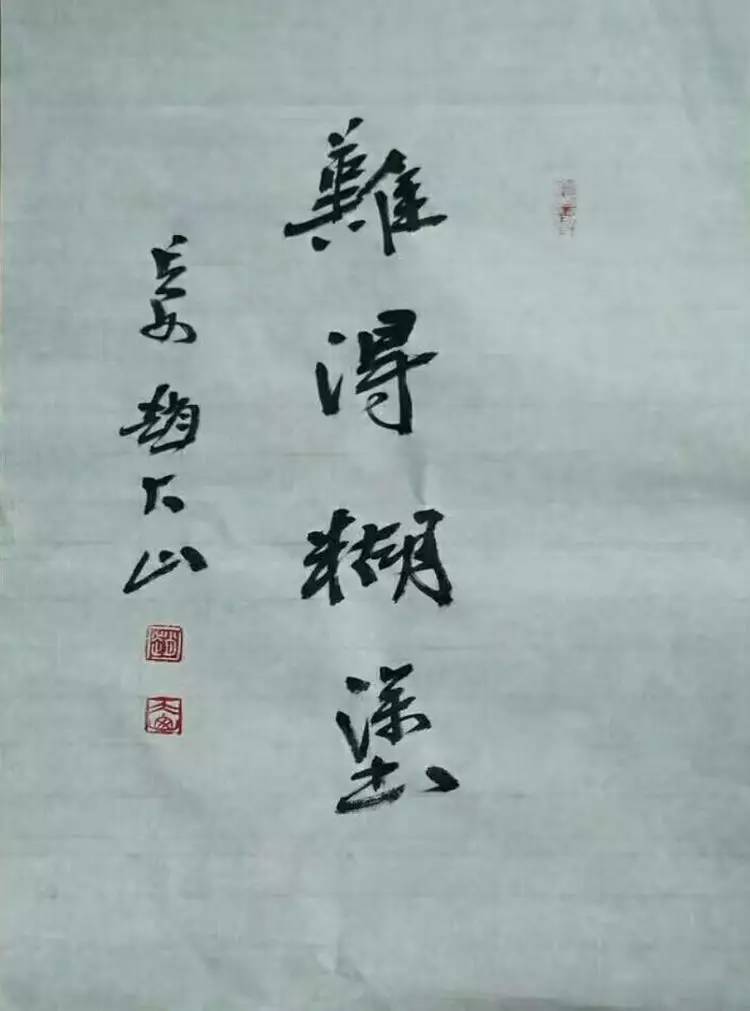 難得糊塗
長安 趙大山